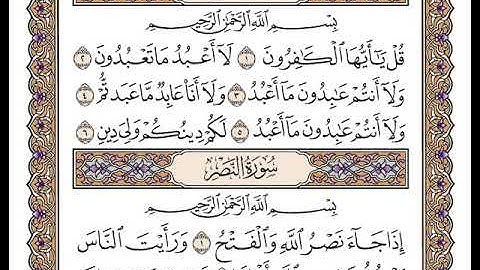 بِسْمِ ٱللَّهِ ٱلرَّحْمَٰنِ ٱلرَّحِيمِ
قُلْ يَٰٓأَيُّهَا ٱلْكَٰفِرُونَ ١ لَآ أَعْبُدُ مَا تَعْبُدُونَ ٢
وَلَآ أَنتُمْ عَٰبِدُونَ مَآ أَعْبُدُ ٣ وَلَآ أَنَا۠ عَابِدٌ مَّا عَبَدتُّمْ ٤
وَلَآ أَنتُمْ عَٰبِدُونَ مَآ أَعْبُدُ ٥ لَكُمْ دِينُكُمْ وَلِىَ دِينِ ٦
سُورَةُ النَّصْرِ
بِسْمِ ٱللَّهِ ٱلرَّحْمَٰنِ ٱلرَّحِيمِ
إِذَا جَآءَ نَصْرُ ٱللَّهِ وَٱلْفَتْحُ ١ وَرَأَيْتَ ٱلنَّاسَ